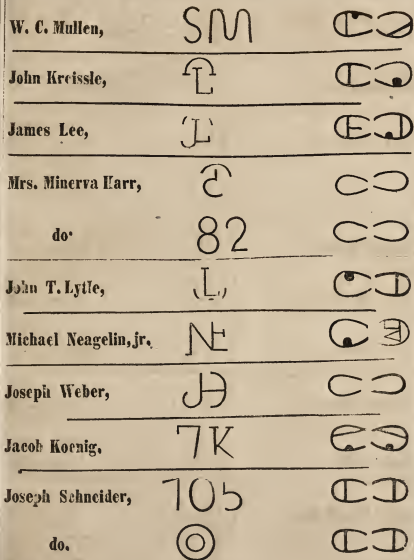 W. C. Mullen, SM
John Kreissle, L
James Lee, JL
Mrs. Minerva Harr,
do. 82
John T. Lytle, L
Michael Neagelin, jr. NE
Joseph Weber, JH
Jacob Koenig, 7K
Joseph Schneider, 105
do.